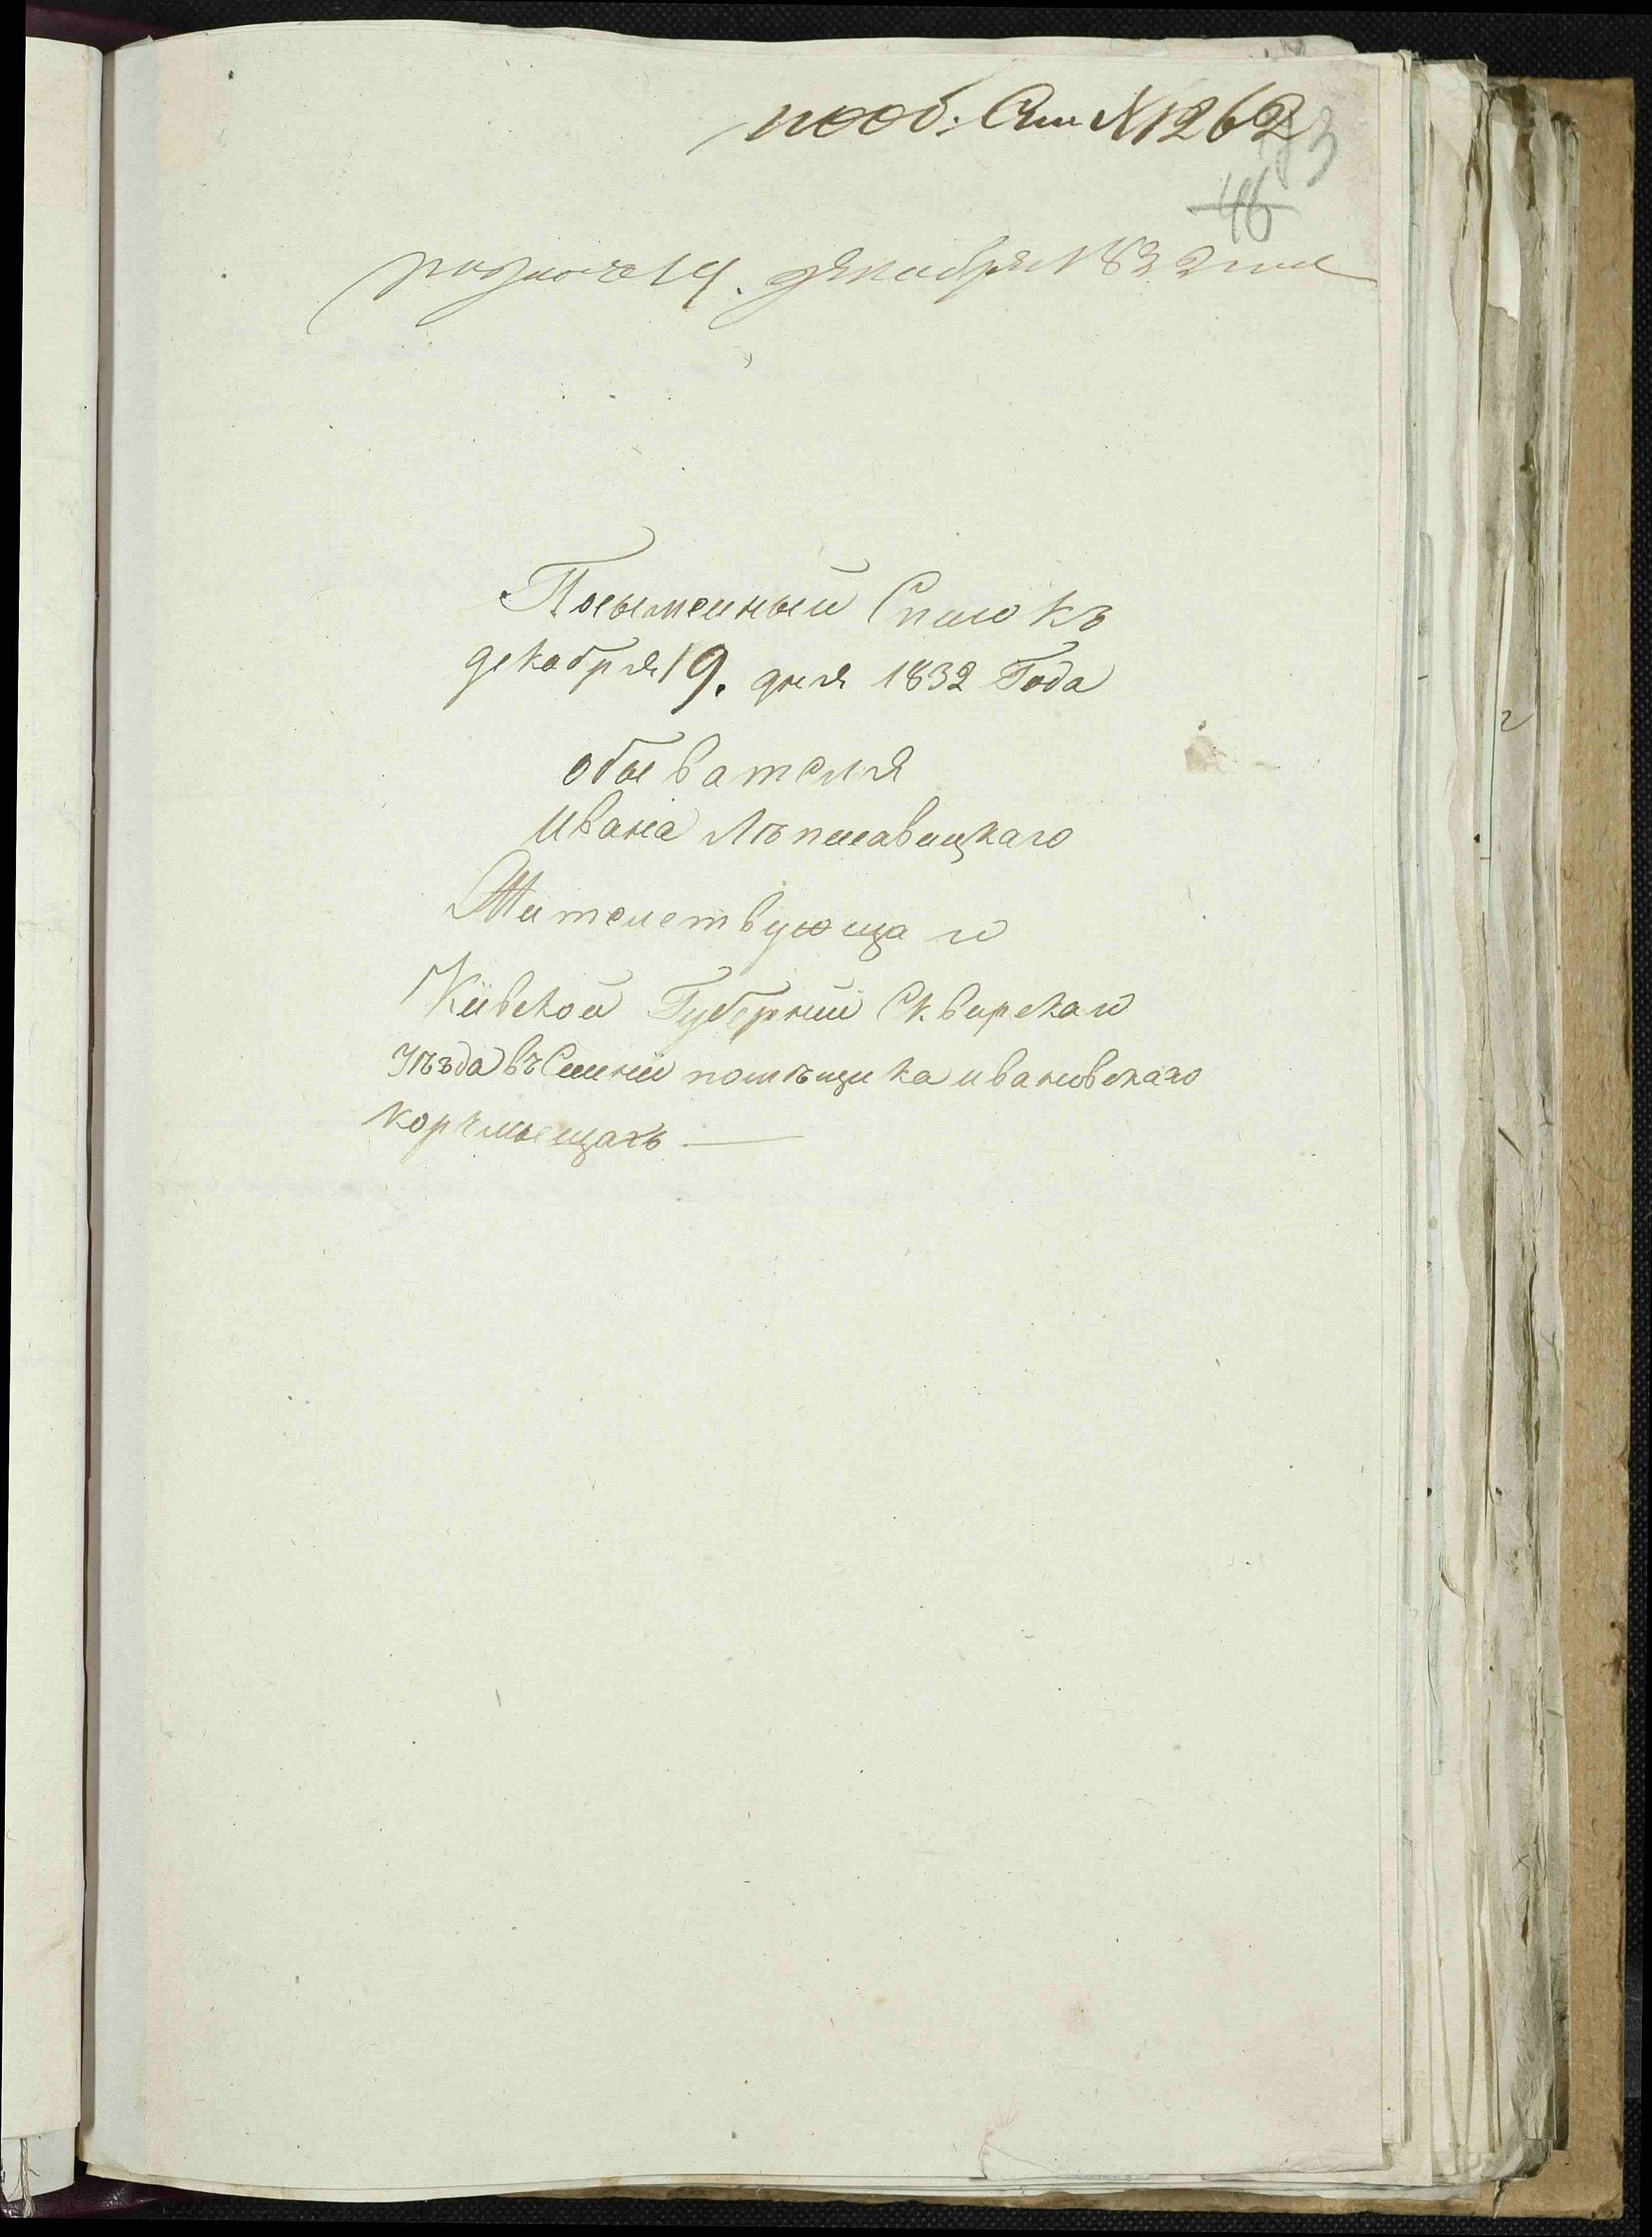 по об: Сти №1262
83
46
декабря 1832 года
Поыменный Списокъ
декабря 19. дня 1832 Года
обывателя
Ивана Лѣпшавицкаго
Жителствующаго
Кіивской Губерніи Сквирскаго
Уѣзда въ Селении помѣщика ивановскаго
корчмыщахъ